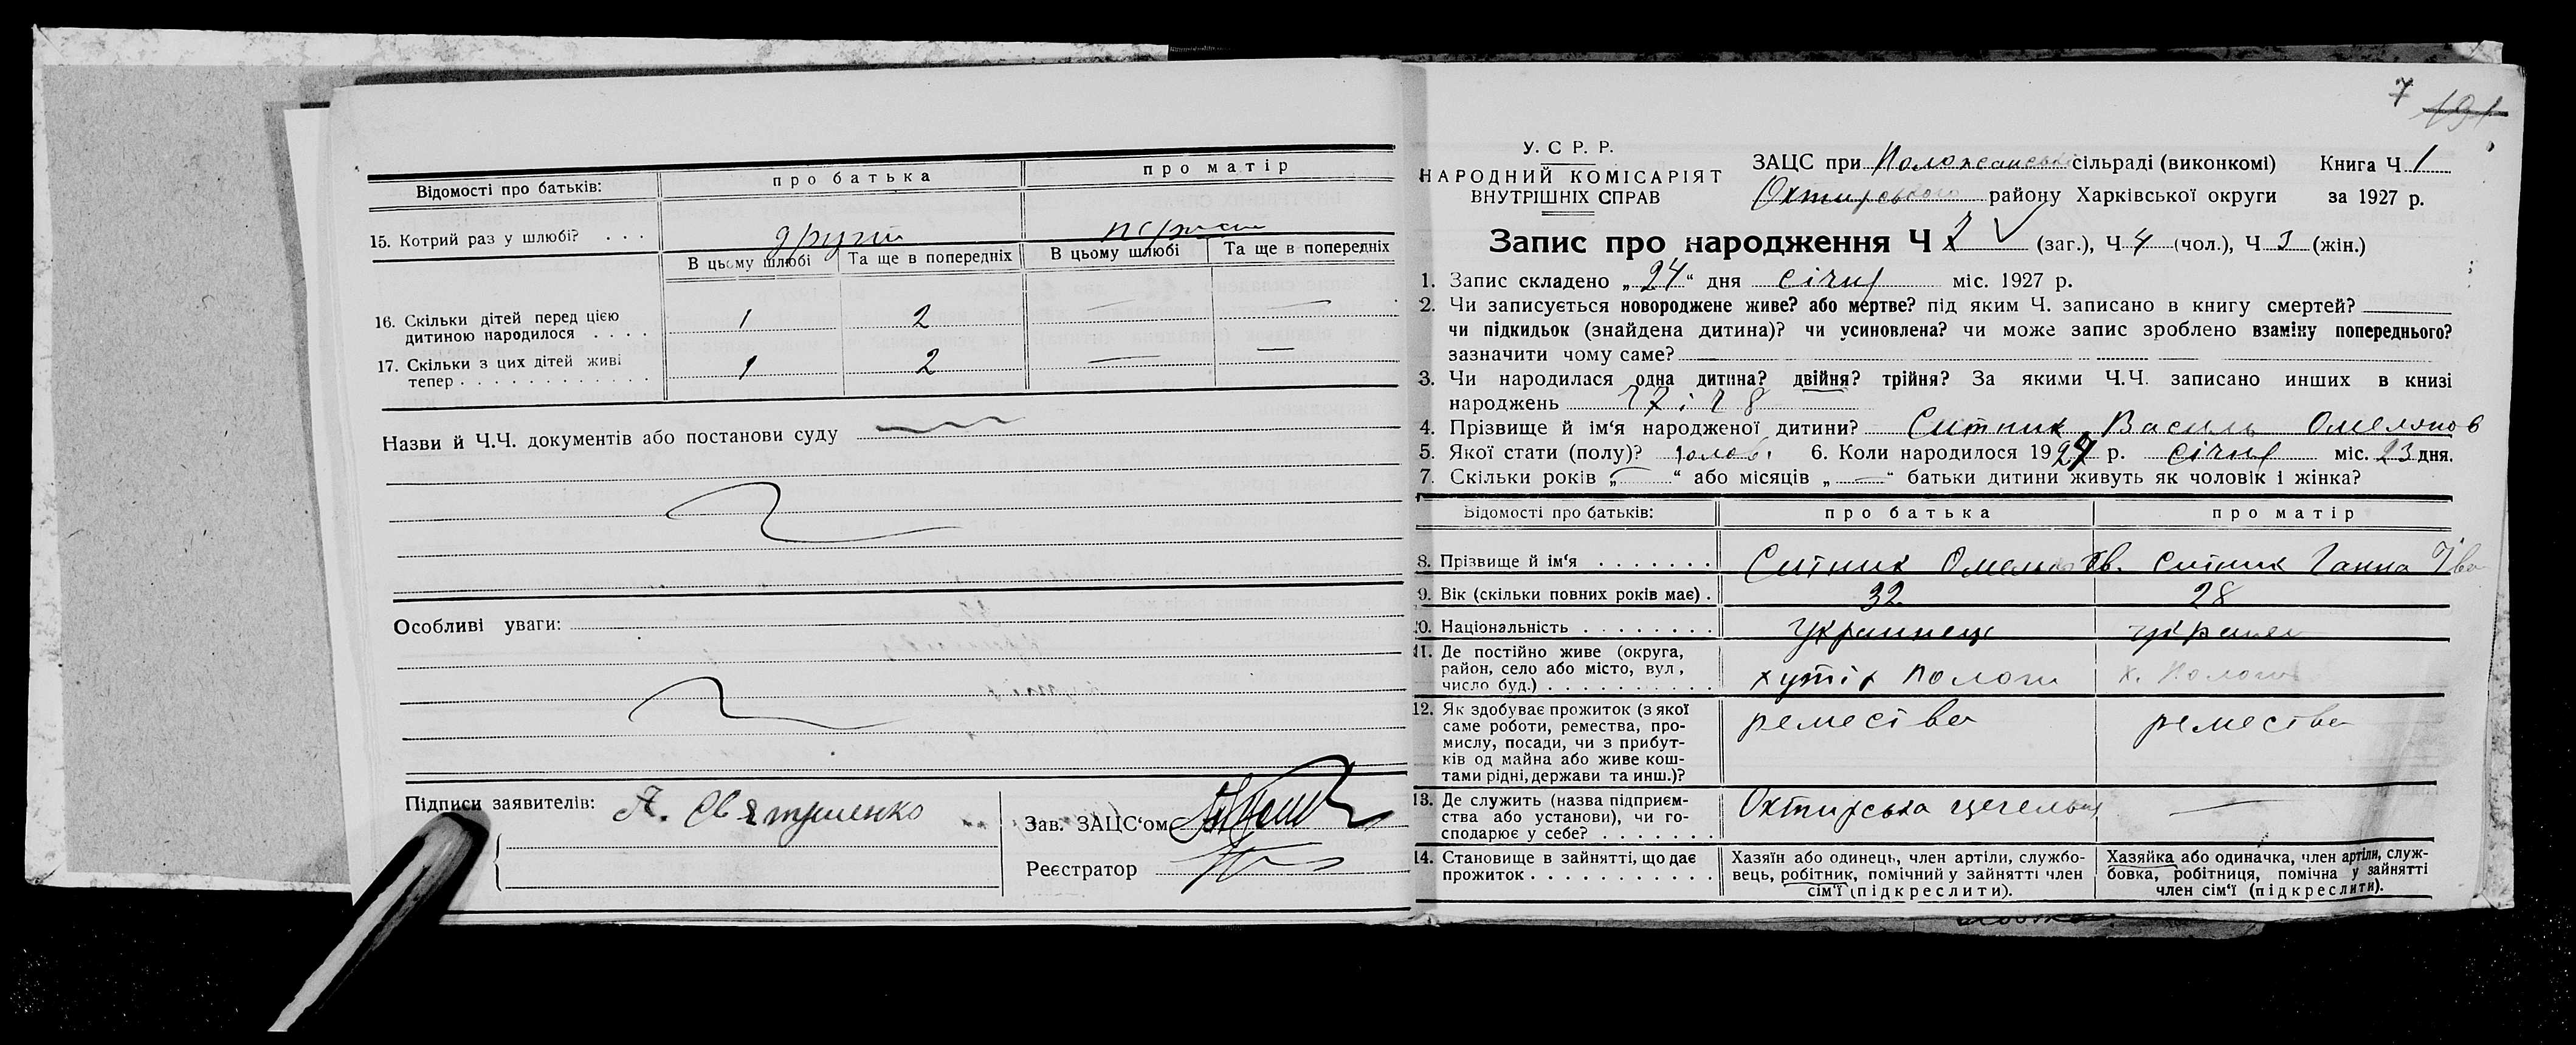 Відомості про батьків: про батька про матір
15. Котрий раз у шлюбі? . . . другий
В цьому шлюбі Та ще в попередніх В цьому шлюбі Та ще в попередніх
16. Скільки дітей перед цією
дитиною народилося . . . . 1 2 — —
17. Скільки з цих дітей живі
тепер . . . . . . . . . . . . . 1 2 — —
Назви й Ч.Ч. документів або постанови суду
Особливі уваги:
Підписи заявителів: А.
Зав. ЗАЦС'ом
Реєстратор
7 191
У. С Р. Р.
НАРОДНИЙ КОМІСАРІЯТ
ВНУТРІШНІХ СПРАВ
ЗАЦС при сільраді (виконкомі) Книга Ч 1
Охтирського району Харківської округи за 1927 р.
Запис про народження Ч 7 (заг.), Ч 4 (чол.), Ч 3 (жін.)
1. Запис складено „24“ дня січня міс. 1927 р.
2. Чи записується новороджене живе? або мертве? під яким Ч. записано в книгу смертей?
чи підкидьок (знайдена дитина)? чи усиновлена? чи може запис зроблено взаміну попереднього?
зазначити чому саме?
3. Чи народилася одна дитина? двійня? трійня? За якими Ч.Ч. записано инших в книзі
народжень 7 і 8
4. Прізвище й ім'я народженої дитини? Ситник Василь Омелянов
5. Якої стати (полу)? чолов. 6. Коли народилося 1927 р. січня міс. 23 дня.
7. Скільки років „—“ або місяців „—“ батьки дитини живуть як чоловік і жінка?
Відомості про батьків: про батька про матір
8. Прізвище й ім'я . . . . . . . Ситник Омелян Ів. Ситник Ганна Іва
9. Вік (скільки повних років має) . 32 28
10. Національність . . . . . . . . Украинець
11. Де постійно живе (округа,
район, село або місто, вул.,
число буд.) . . . . . . . . . . . хутір Пологи х. Пологи
12. Як здобуває прожиток (з якої
саме роботи, ремества, про-
мислу, посади, чи з прибут-
ків од майна або живе кош-
тами рідні, держави та инш.)? ремества ремества
13. Де служить (назва підприєм-
ства або установи), чи го-
сподарює у себе? . . . . . . . Охтирська цегельня —
14. Становище в зайнятті, що дає
прожиток . . . . . . . . . . .
Хазяїн або одинець, член артіли, службо-
вець, робітник, помічний у зайнятті член
сім'ї (підкреслити).
Хазяйка або одиначка, член артіли, служ-
бовка, робітниця, помічна у зайнятті
член сім'ї (підкреслити).